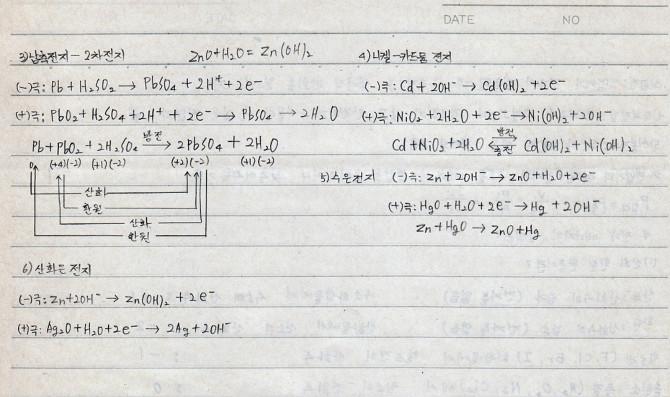 DATE NO
3) 납축전지 - 2차전지 ZnO+H₂O = Zn(OH)₂
(-)극: Pb + H₂SO₂ → PbSO₄ + 2H⁺ + 2e⁻
(+)극: PbO₂ + H₂SO₄ + 2H⁺ + 2e⁻ → PbSO₄ → 2H₂O
Pb + PbO₂ + 2H₂SO₄ 방전→ 2PbSO₄ + 2H₂O
0 (+4)(-2) (+1)(-2) (+2)(-2) (+1)(-2)
산화
환원
산화
환원
4) 니켈-카드뮴 전지
(-)극: Cd + 2OH⁻ → Cd(OH)₂ + 2e⁻
(+)극: NiO₂ + 2H₂O + 2e⁻ → Ni(OH)₂ + 2OH⁻
Cd + NiO₂ + 2H₂O 방전⇌충전 Cd(OH)₂ + Ni(OH)₂
5) 수은전지 (-)극: Zn + 2OH⁻ → ZnO + H₂O + 2e⁻
(+)극: HgO + H₂O + 2e⁻ → Hg + 2OH⁻
Zn + HgO → ZnO + Hg
6) 산화은 전지
(-)극: Zn + 2OH⁻ → Zn(OH)₂ + 2e⁻
(+)극: Ag₂O + H₂O + 2e⁻ → 2Ag + 2OH⁻